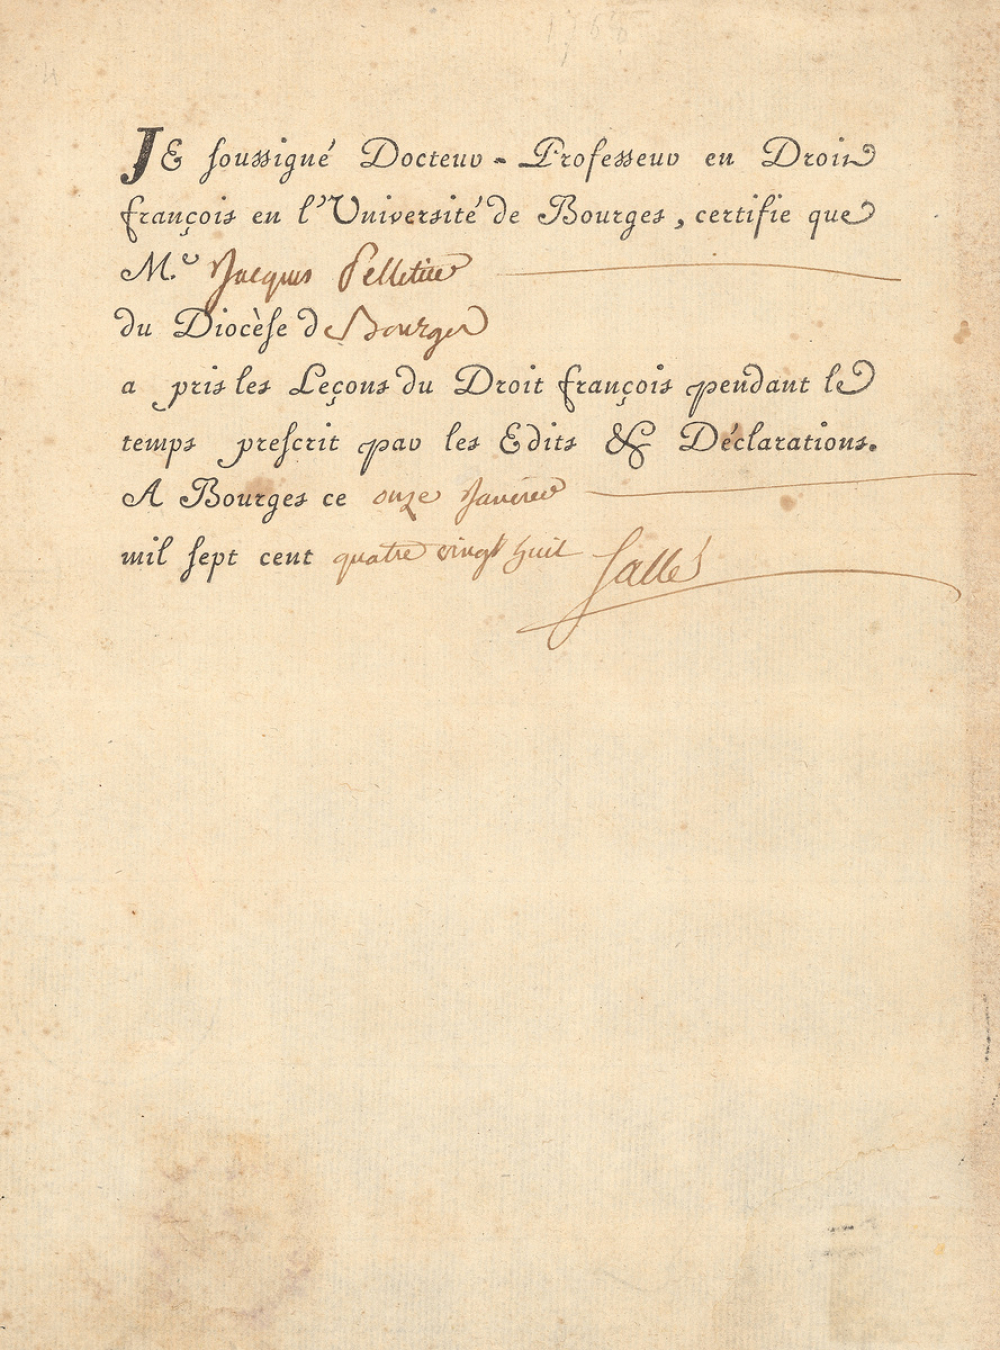 JE soussigné Docteur-Professeur en Droit
françois en l'Université de Bourges, certifie que
M.e Jacques Pelletier
du Diocèse de Bourges
a pris les Leçons du Droit françois pendant le
temps prescrit par les Edits & Déclarations.
A Bourges ce onze Janvier
mil sept cent quatre vingt huit Sallé